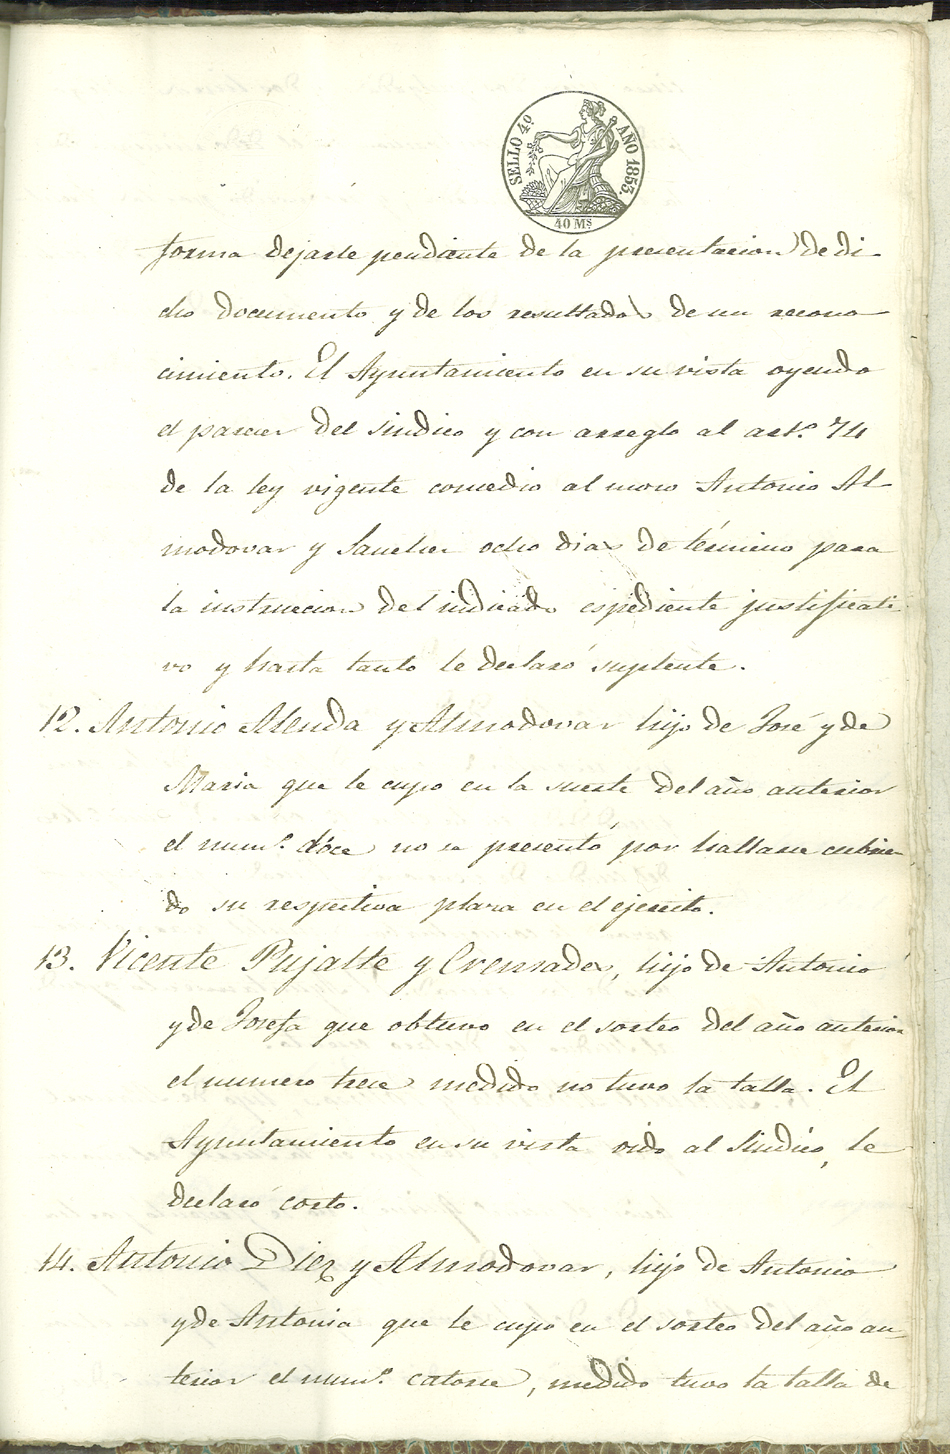 SELLO 4º AÑO 1853.
40 Ms
forma dejarle pendiente de la presentacion de di-
cho documento y de los resultados de un recono-
cimiento. El Ayuntamiento en su vista oyendo
el parecer del sindico y con arreglo al artº 74
de la ley vigente concedio al moso Antonio Al-
modovar y Sanchez ocho dias de término para
la instruccion del indicado espediente justificati-
vo y hasta tanto le declaró suplente.
12. Antonio Alenda y Almodovar hijo de José y de
Maria que le cupo en la suerte del año anterior
el numº doce no se presentó por hallarse cubrien-
do su respectiva plaza en el ejercito.
13. Vicente Pujalte y Cremades, hijo de Antonio
y de Josefa que obtuvo en el sorteo del año anterior
el numero trece medido no tuvo la talla. El
Ayuntamiento en su vista oido al Sindico, le
declaró corto.
14. Antonio Diez y Almodovar, hijo de Antonio
y de Antonia que le cupo en el sorteo del año an-
terior el numº catorce, medido tuvo la talla de